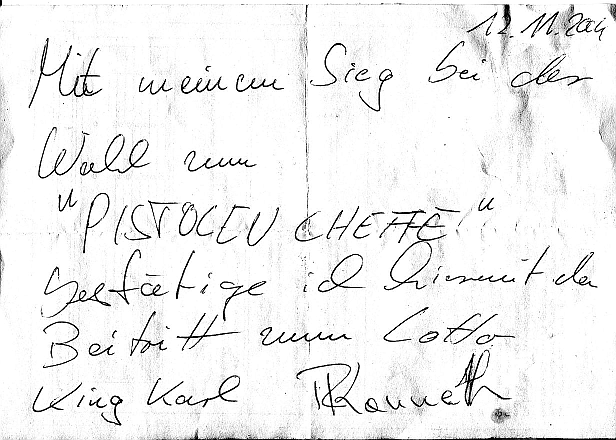 12.11.2004
Mit meinem Sieg bei der
Wahl zum
"PISTOLEN CHEFFE"
bestätige ich hiermit den
Beitritt zum Lotto
King Karl